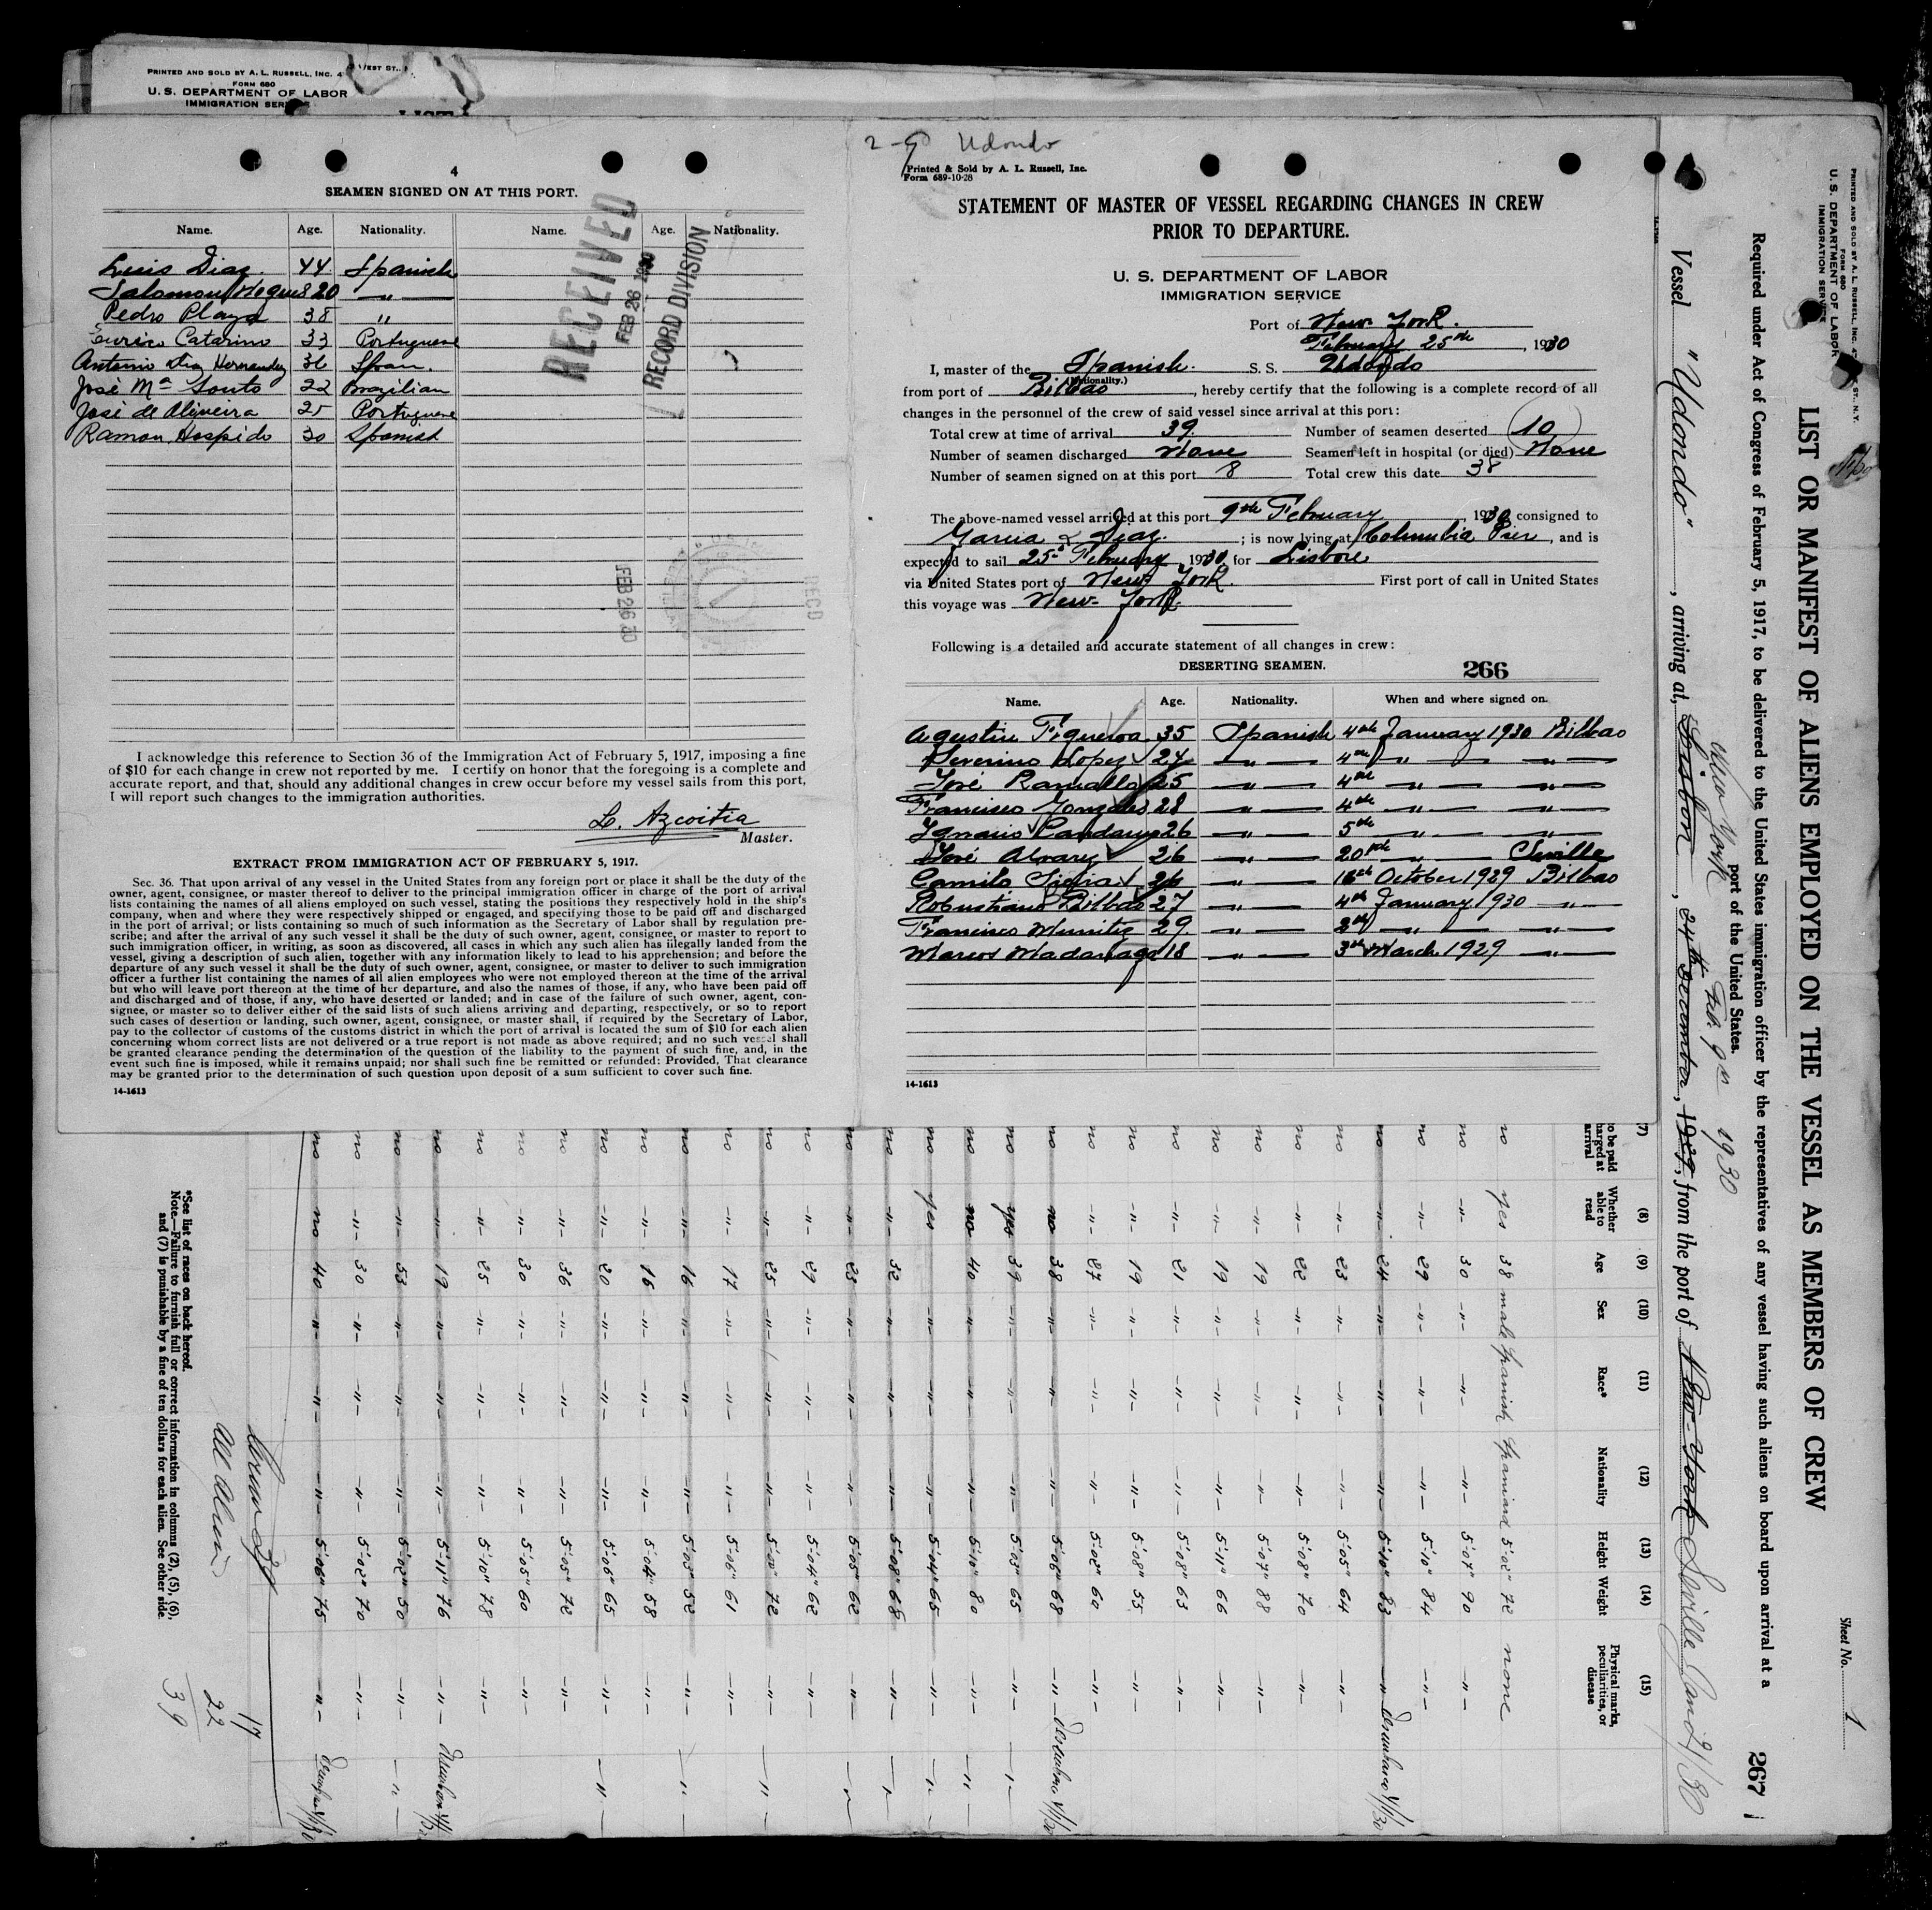 PRINTED AND SOLD BY A. L. RUSSELL, INC.
FORM 680
U. S. DEPARTMENT OF LABOR
IMMIGRATION SERVICE
4
SEAMEN SIGNED ON AT THIS PORT.
Name. Age. Nationality. Name. Age. Nationality.
Luis Diaz. 44 Spanish
Salomon 20 — " —
Pedro Playa 38 "
Eurico Catarino 33 Portuguese
Antonio Diaz Hernandez 36 Span.
José Mª Souto 22 Brazilian
José de Oliveira 25 Portuguese
Ramon Hospido 30 Spanish
RECEIVED
FEB 26 1930
RECORD DIVISION
FEB 26 30
RECD
I acknowledge this reference to Section 36 of the Immigration Act of February 5, 1917, imposing a fine
of $10 for each change in crew not reported by me. I certify on honor that the foregoing is a complete and
accurate report, and that, should any additional changes in crew occur before my vessel sails from this port,
I will report such changes to the immigration authorities.
L. Azcoitia
Master.
EXTRACT FROM IMMIGRATION ACT OF FEBRUARY 5, 1917.
Sec. 36. That upon arrival of any vessel in the United States from any foreign port or place it shall be the duty of the
owner, agent, consignee, or master thereof to deliver to the principal immigration officer in charge of the port of arrival
lists containing the names of all aliens employed on such vessel, stating the positions they respectively hold in the ship's
company, when and where they were respectively shipped or engaged, and specifying those to be paid off and discharged
in the port of arrival; or lists containing so much of such information as the Secretary of Labor shall by regulation pre-
scribe; and after the arrival of any such vessel it shall be the duty of such owner, agent, consignee, or master to report to
such immigration officer, in writing, as soon as discovered, all cases in which any such alien has illegally landed from the
vessel, giving a description of such alien, together with any information likely to lead to his apprehension; and before the
departure of any such vessel it shall be the duty of such owner, agent, consignee, or master to deliver to such immigration
officer a further list containing the names of all alien employees who were not employed thereon at the time of the arrival
but who will leave port thereon at the time of her departure, and also the names of those, if any, who have been paid off
and discharged and of those, if any, who have deserted or landed; and in case of the failure of such owner, agent, con-
signee, or master so to deliver either of the said lists of such aliens arriving and departing, respectively, or so to report
such cases of desertion or landing, such owner, agent, consignee, or master shall, if required by the Secretary of Labor,
pay to the collector of customs of the customs district in which the port of arrival is located the sum of $10 for each alien
concerning whom correct lists are not delivered or a true report is not made as above required; and no such vessel shall
be granted clearance pending the determination of the question of the liability to the payment of such fine, and, in the
event such fine is imposed, while it remains unpaid; nor shall such fine be remitted or refunded: Provided, That clearance
may be granted prior to the determination of such question upon deposit of a sum sufficient to cover such fine.
14-1613
2-9 Udondo
Printed & Sold by A. L. Russell, Inc.
Form 689-10-28
STATEMENT OF MASTER OF VESSEL REGARDING CHANGES IN CREW
PRIOR TO DEPARTURE.
U. S. DEPARTMENT OF LABOR
IMMIGRATION SERVICE
Port of New York.
February 25th, 1930
I, master of the Spanish. S. S. Udondo
(Nationality.)
from port of Bilbao, hereby certify that the following is a complete record of all
changes in the personnel of the crew of said vessel since arrival at this port:
Total crew at time of arrival 39. Number of seamen deserted 10
Number of seamen discharged None Seamen left in hospital (or died) None
Number of seamen signed on at this port 8 Total crew this date 38
The above-named vessel arrived at this port 9th February, 1930, consigned to
Garcia & Diaz.; is now lying at Columbia Pier, and is
expected to sail 25th February, 1930, for Lisbon
via United States port of New York. First port of call in United States
this voyage was New-York.
Following is a detailed and accurate statement of all changes in crew:
DESERTING SEAMEN. 266
Name. Age. Nationality. When and where signed on.
Agustin Figueroa 35 Spanish 4th January 1930 Bilbao
Severino Lopez 24 — " — 4th " — " —
José Ramallo 25 — " — 4th " — " —
Francisco Gonzales 28 — " — 4th " — " —
Ignacio 26 — " — 5th — " — — " —
José Alvarez 26 — " — 20th — " — Seville
Camilo 26 — " — 16th October 1929 Bilbao
Robustiano Bilbao 27 — " — 4th January 1930 — " —
Francisco Munitiz 29 — " — — " — — " —
Marcos Madariaga 18 — " — 3th March 1929 — " —
14-1613
PRINTED AND SOLD BY A. L. RUSSELL, INC.
FORM 680
U. S. DEPARTMENT OF LABOR
IMMIGRATION SERVICE
Sheet No. 1
LIST OR MANIFEST OF ALIENS EMPLOYED ON THE VESSEL AS MEMBERS OF CREW
267
Required under Act of Congress of February 5, 1917, to be delivered to the United States immigration officer by the representatives of any vessel having such aliens on board upon arrival at a
port of the United States.
New York Feb. 9th 1930
Vessel "Udondo", arriving at Lisbon, 24th December, 1929, from the port of New-York Seville Jan 21/30
(7) (8) (9) (10) (11) (12) (13) (14) (15)
Whether able to read Age Sex Race* Nationality Height Weight Physical marks, peculiarities, or disease
no yes 38 male Spanish Spaniard 5'02" 72 none
no -"- 30 -"- -"- -"- 5'07" 90 -"-
no -"- 29 -"- -"- -"- 5'10" 84 -"-
no -"- 24 -"- -"- -"- 5'10" 83 -"-
no -"- 23 -"- -"- -"- 5'05" 64 -"-
no -"- 22 -"- -"- -"- 5'08" 70 -"-
no -"- 19 -"- -"- -"- 5'07" 88 -"-
no -"- 19 -"- -"- -"- 5'11" 66 -"-
no -"- 21 -"- -"- -"- 5'08" 63 -"-
no -"- 19 -"- -"- -"- 5'08" 55 -"-
no -"- 27 -"- -"- -"- 5'02" 60 -"-
no no 38 -"- -"- -"- 5'06" 68 -"-
no yes 39 -"- -"- -"- 5'03" 65 -"-
no no 40 -"- -"- -"- 5'10" 80 -"-
no yes -"- -"- -"- 5'04" 65 -"-
no -"- 32 -"- -"- -"- 5'08" 68 -"-
no -"- 23 -"- -"- -"- 5'05" 62 -"-
no -"- 29 -"- -"- -"- 5'04" 62 -"-
no -"- 25 -"- -"- -"- 5'00" 72 -"-
no -"- 17 -"- -"- -"- 5'06" 61 -"-
no -"- 16 -"- -"- -"- 5'03" 52 -"-
no -"- 16 -"- -"- -"- 5'04" 58 -"-
no -"- 20 -"- -"- -"- 5'06" 65 -"-
no -"- 36 -"- -"- -"- 5'05" 72 -"-
no -"- 30 -"- -"- -"- 5'05" 60 -"-
no -"- 25 -"- -"- -"- 5'10" 78 -"-
no -"- 19 -"- -"- -"- 5'11" 76 -"-
no -"- 53 -"- -"- -"- 5'02" 50 -"-
no -"- 30 -"- -"- -"- 5'02" 70 -"-
no no 40 -"- -"- -"- 5'06" 75 -"-
Crew 39
All Alien
17
22
39
*See list of races on back hereof.
Note.—Failure to furnish full or correct information in columns (2), (5), (6),
and (7) is punishable by a fine of ten dollars for each alien. See other side.